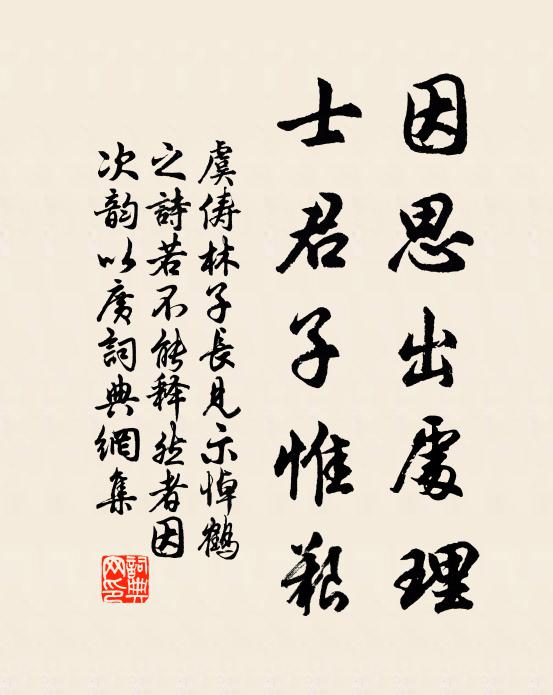 因思出處理
士君子惟艱
虞俦林子長見示悼鶴
之詩若不能释然者因
次韵以广詞典網集
詞典
网印